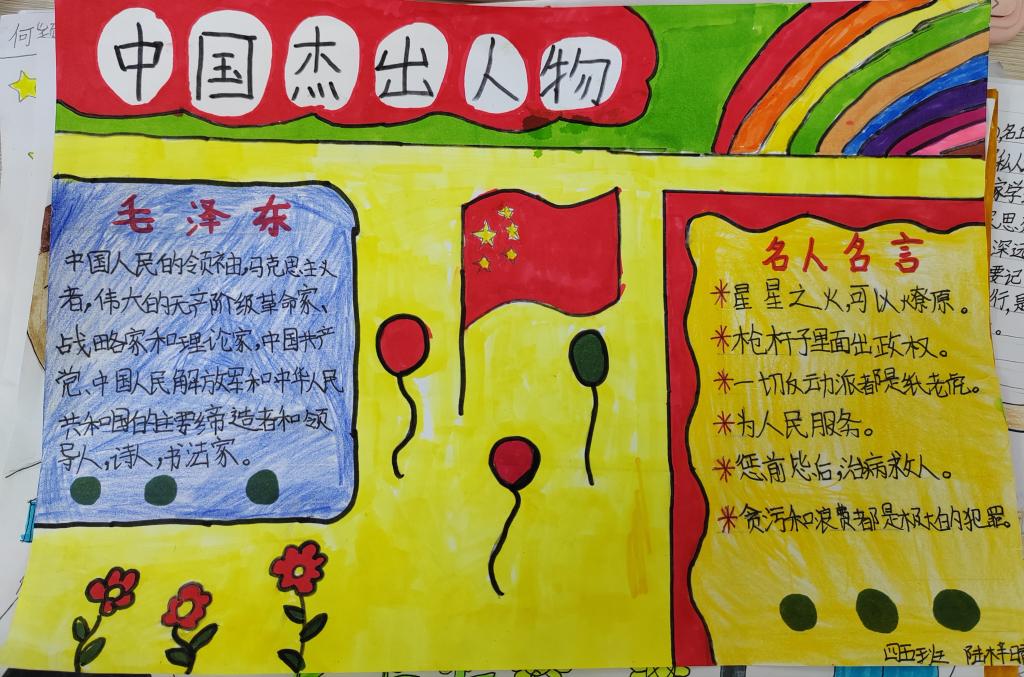 中国杰出人物
毛泽东
中国人民的领袖,马克思主义
者,伟大的无产阶级革命家、
战略家和理论家,中国共产
党、中国人民解放军和中华人民
共和国的主要缔造者和领
导人,诗人,书法家。
名人名言
*星星之火,可以燎原。
*枪杆子里面出政权。
*一切反动派都是纸老虎。
*为人民服务。
*惩前毖后,治病救人。
*贪污和浪费都是极大的犯罪。
四五班 陆梓
何